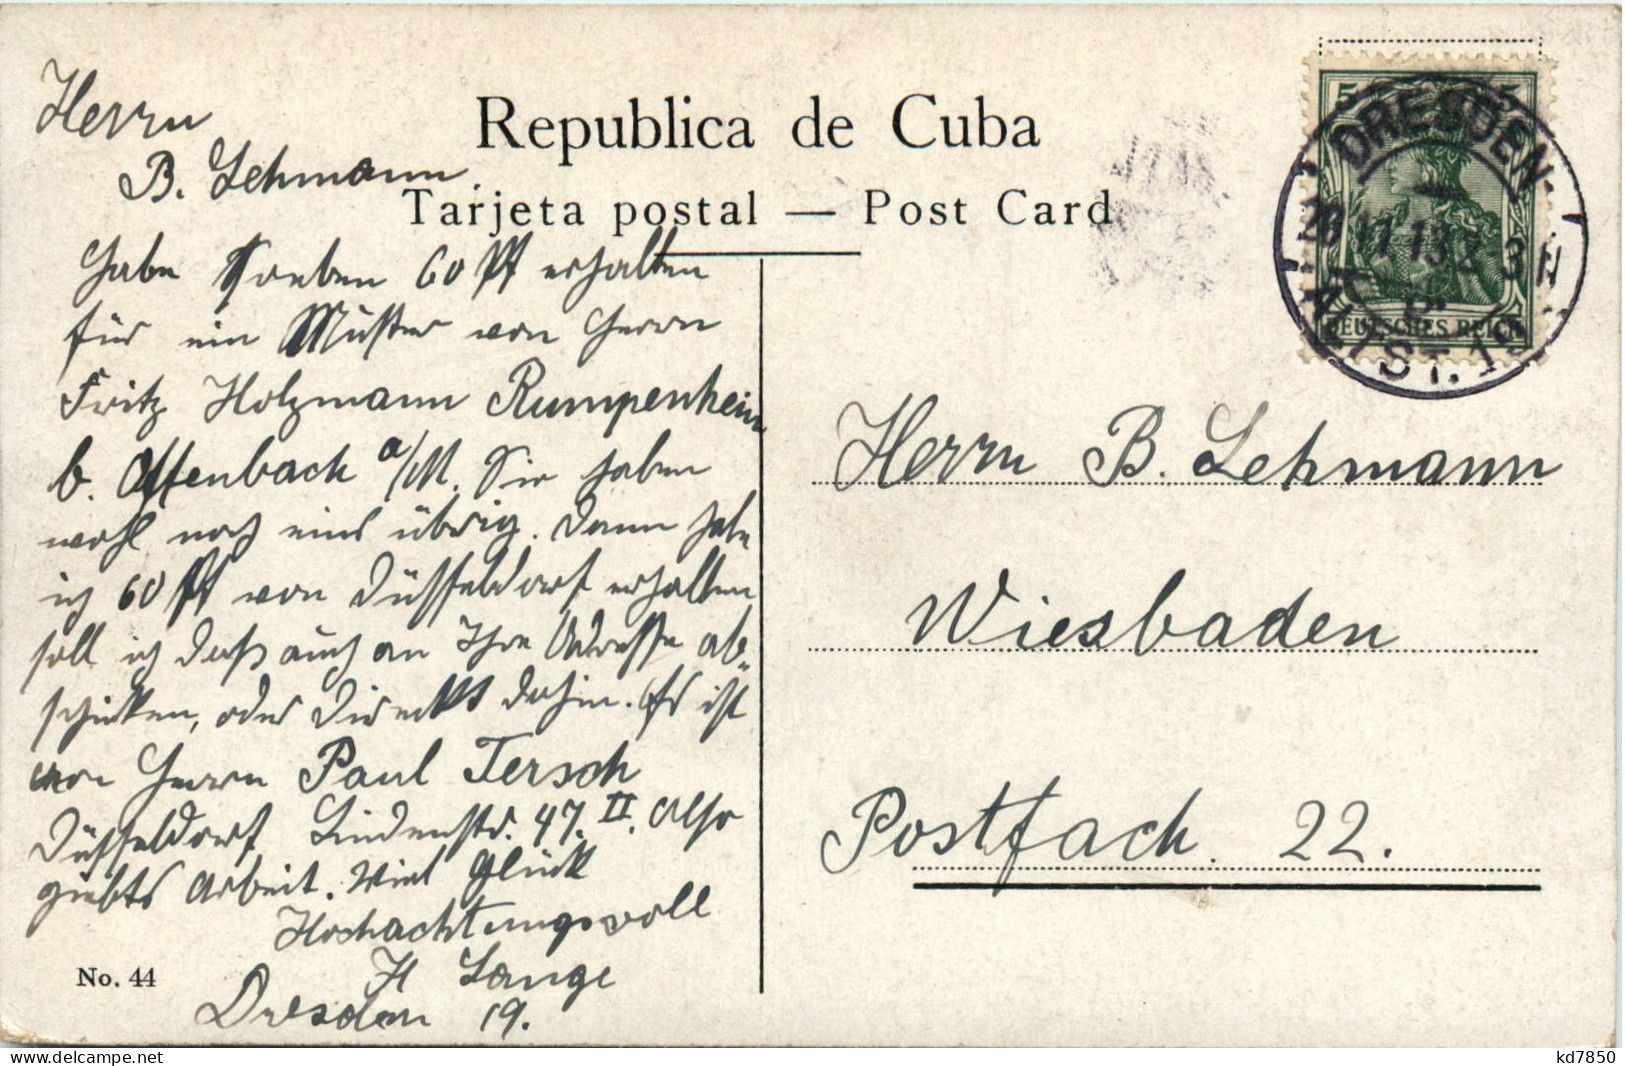 Republica de Cuba
Tarjeta postal — Post Card
Herrn
B. Lehmann
Habe soeben 60 Pf erhalten
für ein Muster von Herrn
Fritz Holzmann Rumpenheim
b. Offenbach a/M. Sie haben
wohl noch eins übrig. Dann habe
ich 60 Pf von Düsseldorf erhalten
soll ich daß auch an Ihre Adresse ab-
schicken, oder direckt dahin. Es ist
von Herrn Paul Tersch
Düsseldorf Lindenstr. 47. II. Also
giebts Arbeit. Viel Glück
Hochachtungsvoll
H Lange
Dresden 19.
No. 44
5 5
DEUTSCHES REICH
DRESDEN
ALTST. 19
Herrn B. Lehmann
Wiesbaden
Postfach 22.
kd7850
delcampe.net